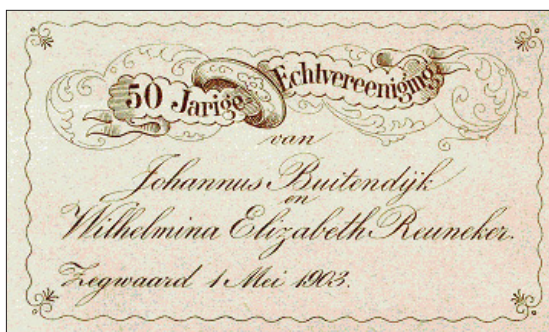 50 Jarige Echtvereeniging
van
Johannus Buitendijk
en
Wilhelmina Elizabeth Reuneker.
Zegwaard 1 Mei 1903.